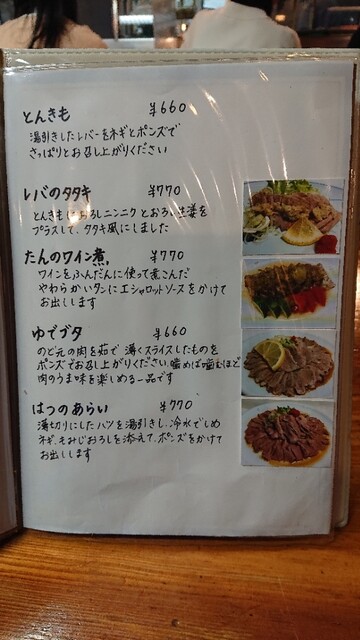 とんきも ¥660
湯引きしたレバーをネギとポンズで
さっぱりとお召し上がりください
レバのタタキ ¥770
とんきもにおろしニンニクとおろし生姜を
プラスして、タタキ風にしました
たんのワイン煮 ¥770
ワインをふんだんに使って煮こんだ
やわらかいタンにエシャロットソースをかけて
お出しします
ゆでブタ ¥660
のど元の肉を茹で 薄くスライスしたものを
ポンズでお召し上がりください。噛めば噛むほど
肉のうま味を楽しめる一品です
はつのあらい ¥770
薄切りにしたハツを湯引きし、冷水でしめ
ネギ、もみじおろしを添えて、ポンズをかけて
お出しします